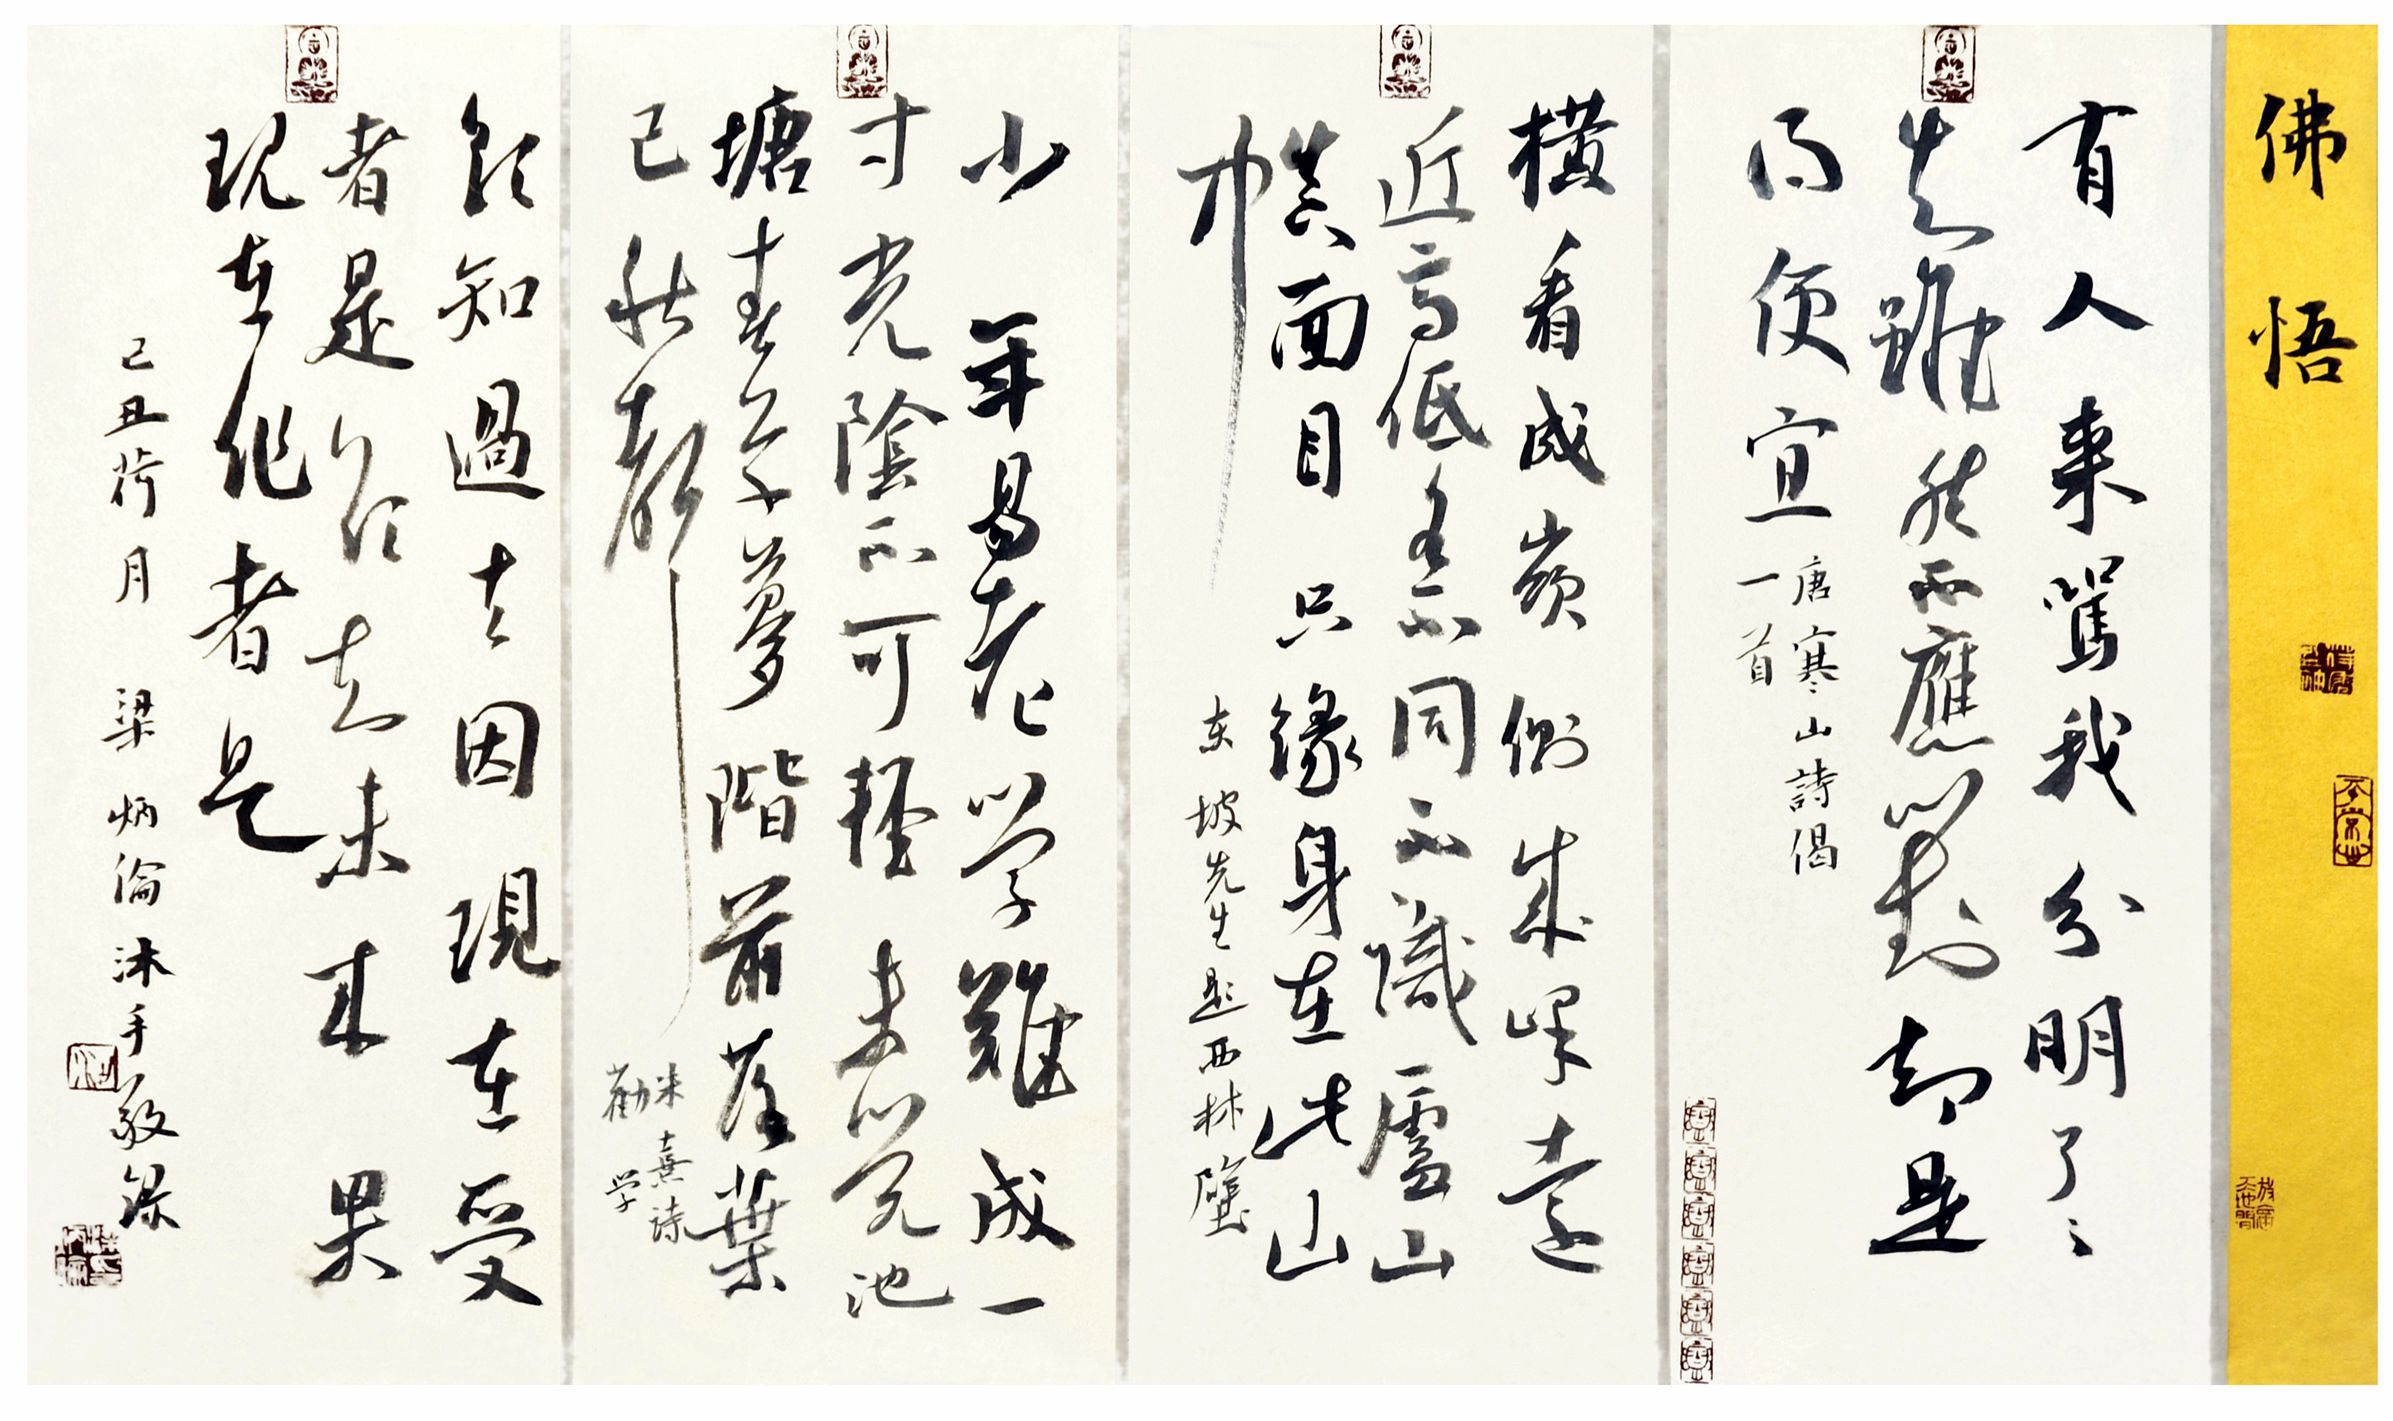 佛悟
有人来罵我分明了〻
知雖然不應對却是
得便宜
唐寒山詩偈
一首
横看成嶺側成峰遠
近高低各不同不識盧山
真面目只緣身在此山
中
东坡先生题西林壁
少年易老学難成一
寸光陰不可輕未覺池
塘春草夢階前落葉
已秋聲
朱熹詩
勸学
欲知過去因現在受
者是欲知未来果
现在作者是
己丑荷月 梁炳倫沐手敬録